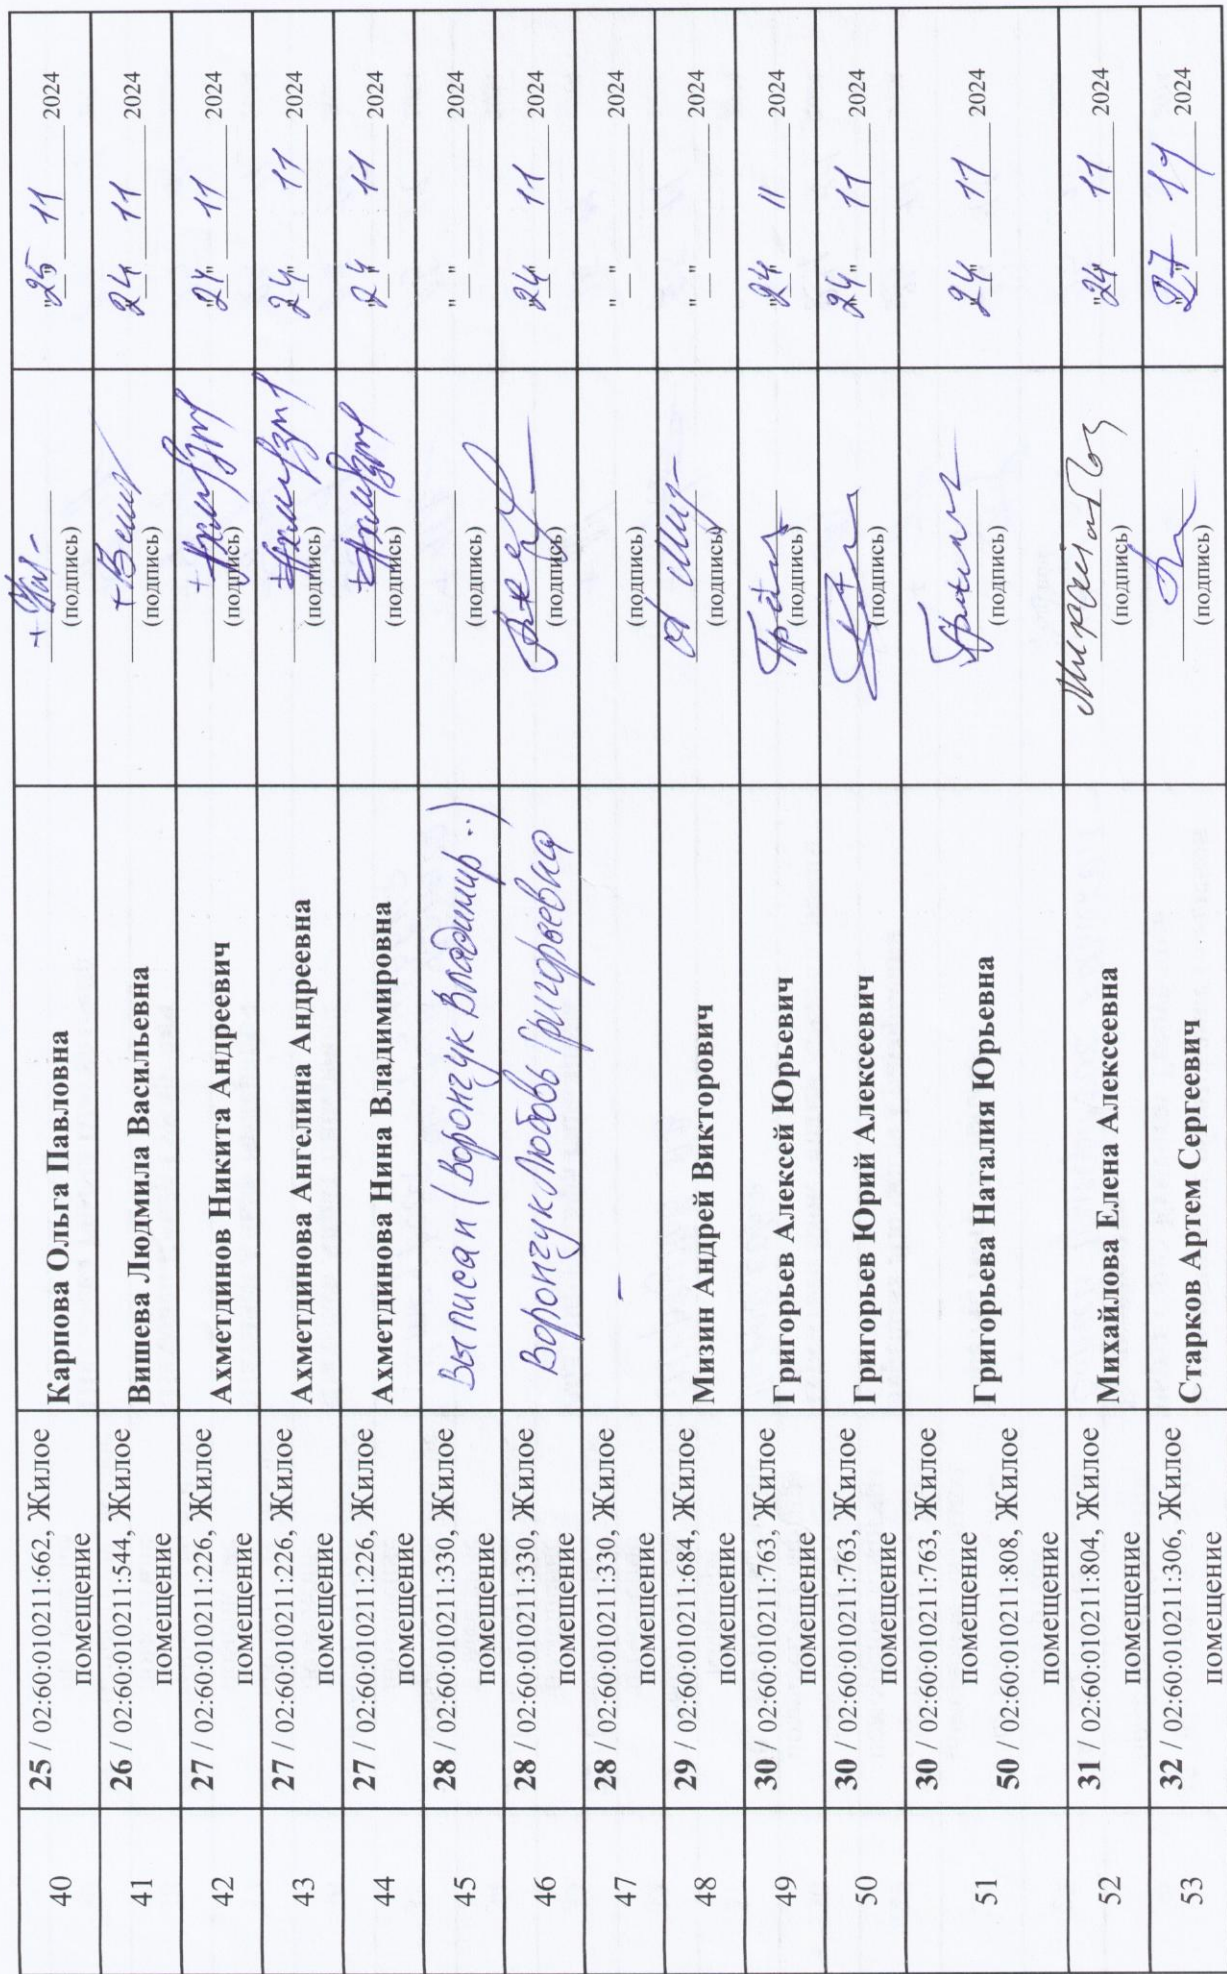 40 25 / 02:60:010211:662, Жилое помещение Карпова Ольга Павловна + (подпись) "25" 11 2024
41 26 / 02:60:010211:544, Жилое помещение Вишева Людмила Васильевна + Виш (подпись) "24" 11 2024
42 27 / 02:60:010211:226, Жилое помещение Ахметдинов Никита Андреевич + (подпись) "24" 11 2024
43 27 / 02:60:010211:226, Жилое помещение Ахметдинова Ангелина Андреевна + (подпись) "24" 11 2024
44 27 / 02:60:010211:226, Жилое помещение Ахметдинова Нина Владимировна + (подпись) "24" 11 2024
45 28 / 02:60:010211:330, Жилое помещение Выписан (Воронгук Владимир ..) (подпись) " " 2024
46 28 / 02:60:010211:330, Жилое помещение Воронгук Любовь Григорьевна (подпись) "24" 11 2024
47 28 / 02:60:010211:330, Жилое помещение – (подпись) " " 2024
48 29 / 02:60:010211:684, Жилое помещение Мизин Андрей Викторович (подпись) " " 2024
49 30 / 02:60:010211:763, Жилое помещение Григорьев Алексей Юрьевич (подпись) "24" 11 2024
50 30 / 02:60:010211:763, Жилое помещение Григорьев Юрий Алексеевич (подпись) "24" 11 2024
51 30 / 02:60:010211:763, Жилое помещение
50 / 02:60:010211:808, Жилое помещение Григорьева Наталия Юрьевна (подпись) "24" 11 2024
52 31 / 02:60:010211:804, Жилое помещение Михайлова Елена Алексеевна (подпись) "24" 11 2024
53 32 / 02:60:010211:306, Жилое помещение Старков Артем Сергеевич (подпись) "27" 2024